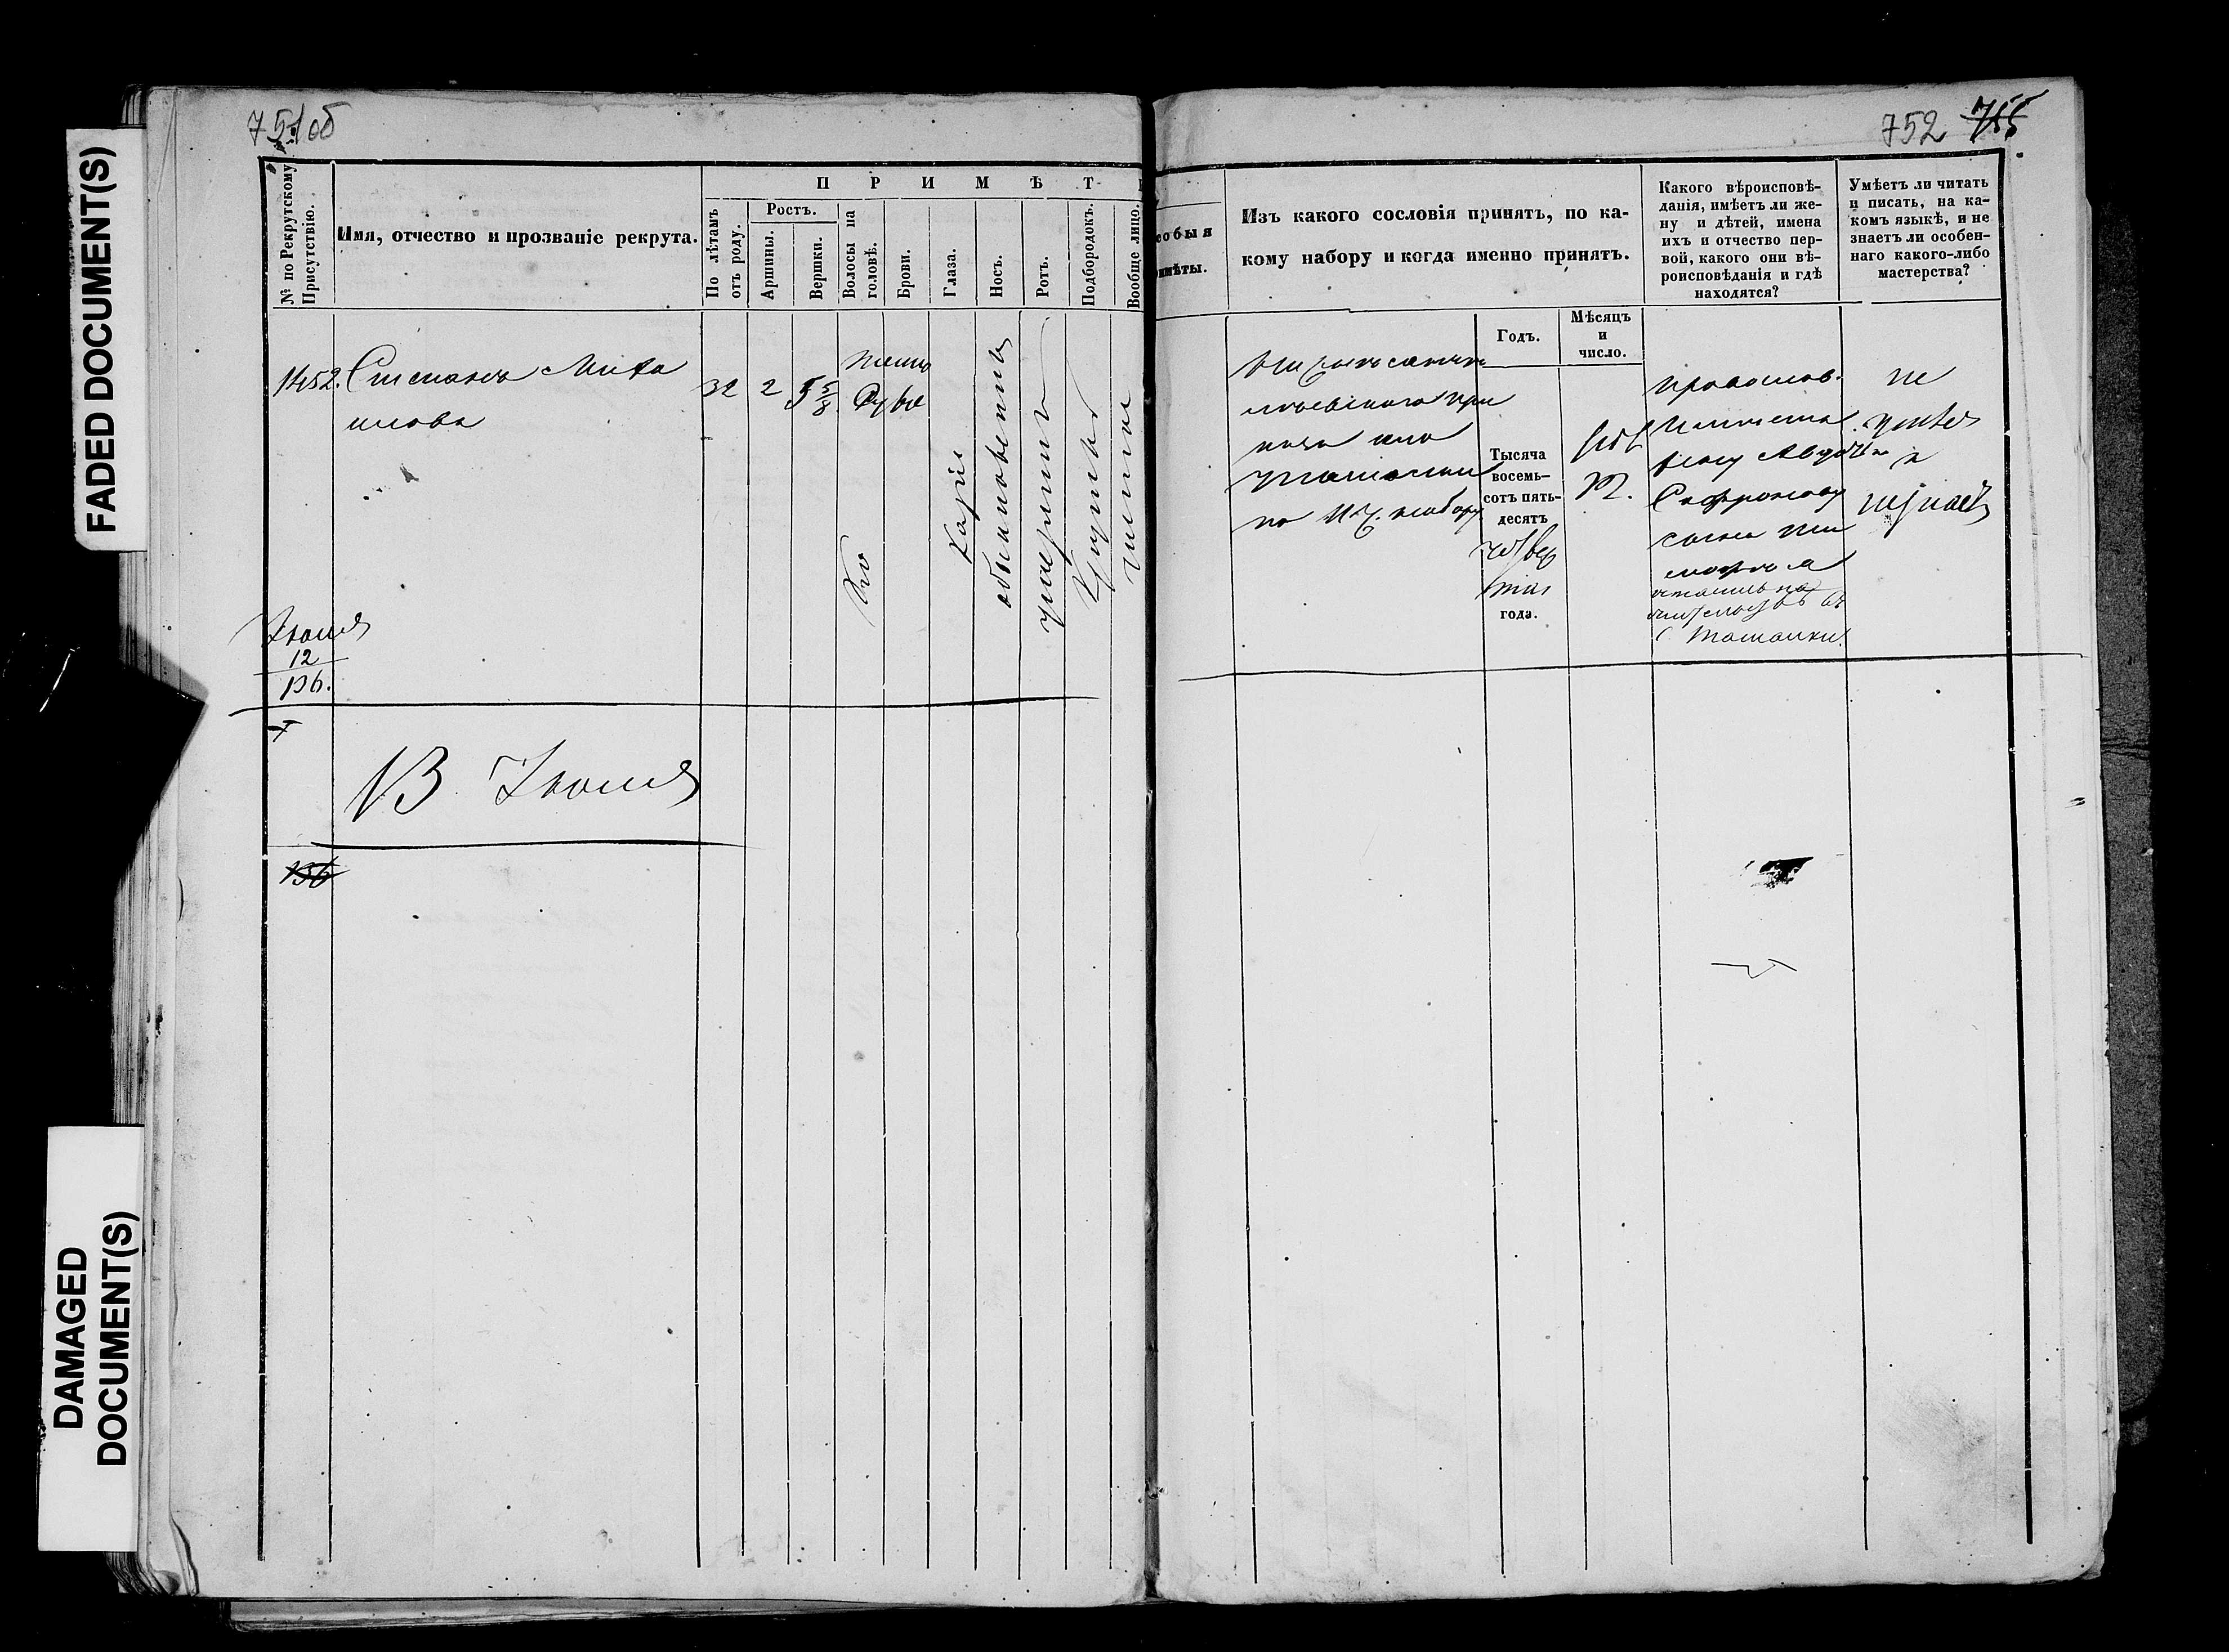 FADED DOCUMENT(S)
DAMAGED
DOCUMENT(S)
751об
№ по Рекрутскому
Присутствію.
Имя, отчество и прозваніе рекрута.
П Р И М Ѣ Т
По лѣтамъ
отъ роду.
Ростъ.
Аршины.
Вершки.
Волосы на
головѣ.
Брови.
Глаза.
Носъ.
Ротъ.
Подбородокъ.
Вообще лицо.
1452. Степанъ Миха
илова
32 2 5 5/8
темно
русые
Каріе
обыкновенный
умеренный
Круглый
чистое
Іюня
12
136.
13 Іюня
136
752 755
собыя
имѣты.
Изъ какого сословія принятъ, по ка-
кому набору и когда именно принятъ.
Годъ.
Мѣсяцъ
и
число.
Какого вѣроисповѣ-
данія, имѣетъ ли же-
ну и дѣтей, имена
ихъ и отчество пер-
вой, какого они вѣ-
роисповѣданія и гдѣ
находятся?
Умѣетъ ли читать
и писать, на ка-
комъ языкѣ, и не
знаетъ ли особен-
наго какого-либо
мастерства?
каза
по 11 ч. набору
Тысяча
восемь-
сотъ пять-
десятъ
четвер
таго
года.
12.
православ.
жену Авдотью
Сафронову
сына Ти
мофея
с. Ташолки
не
умѣетъ
и
незнаетъ